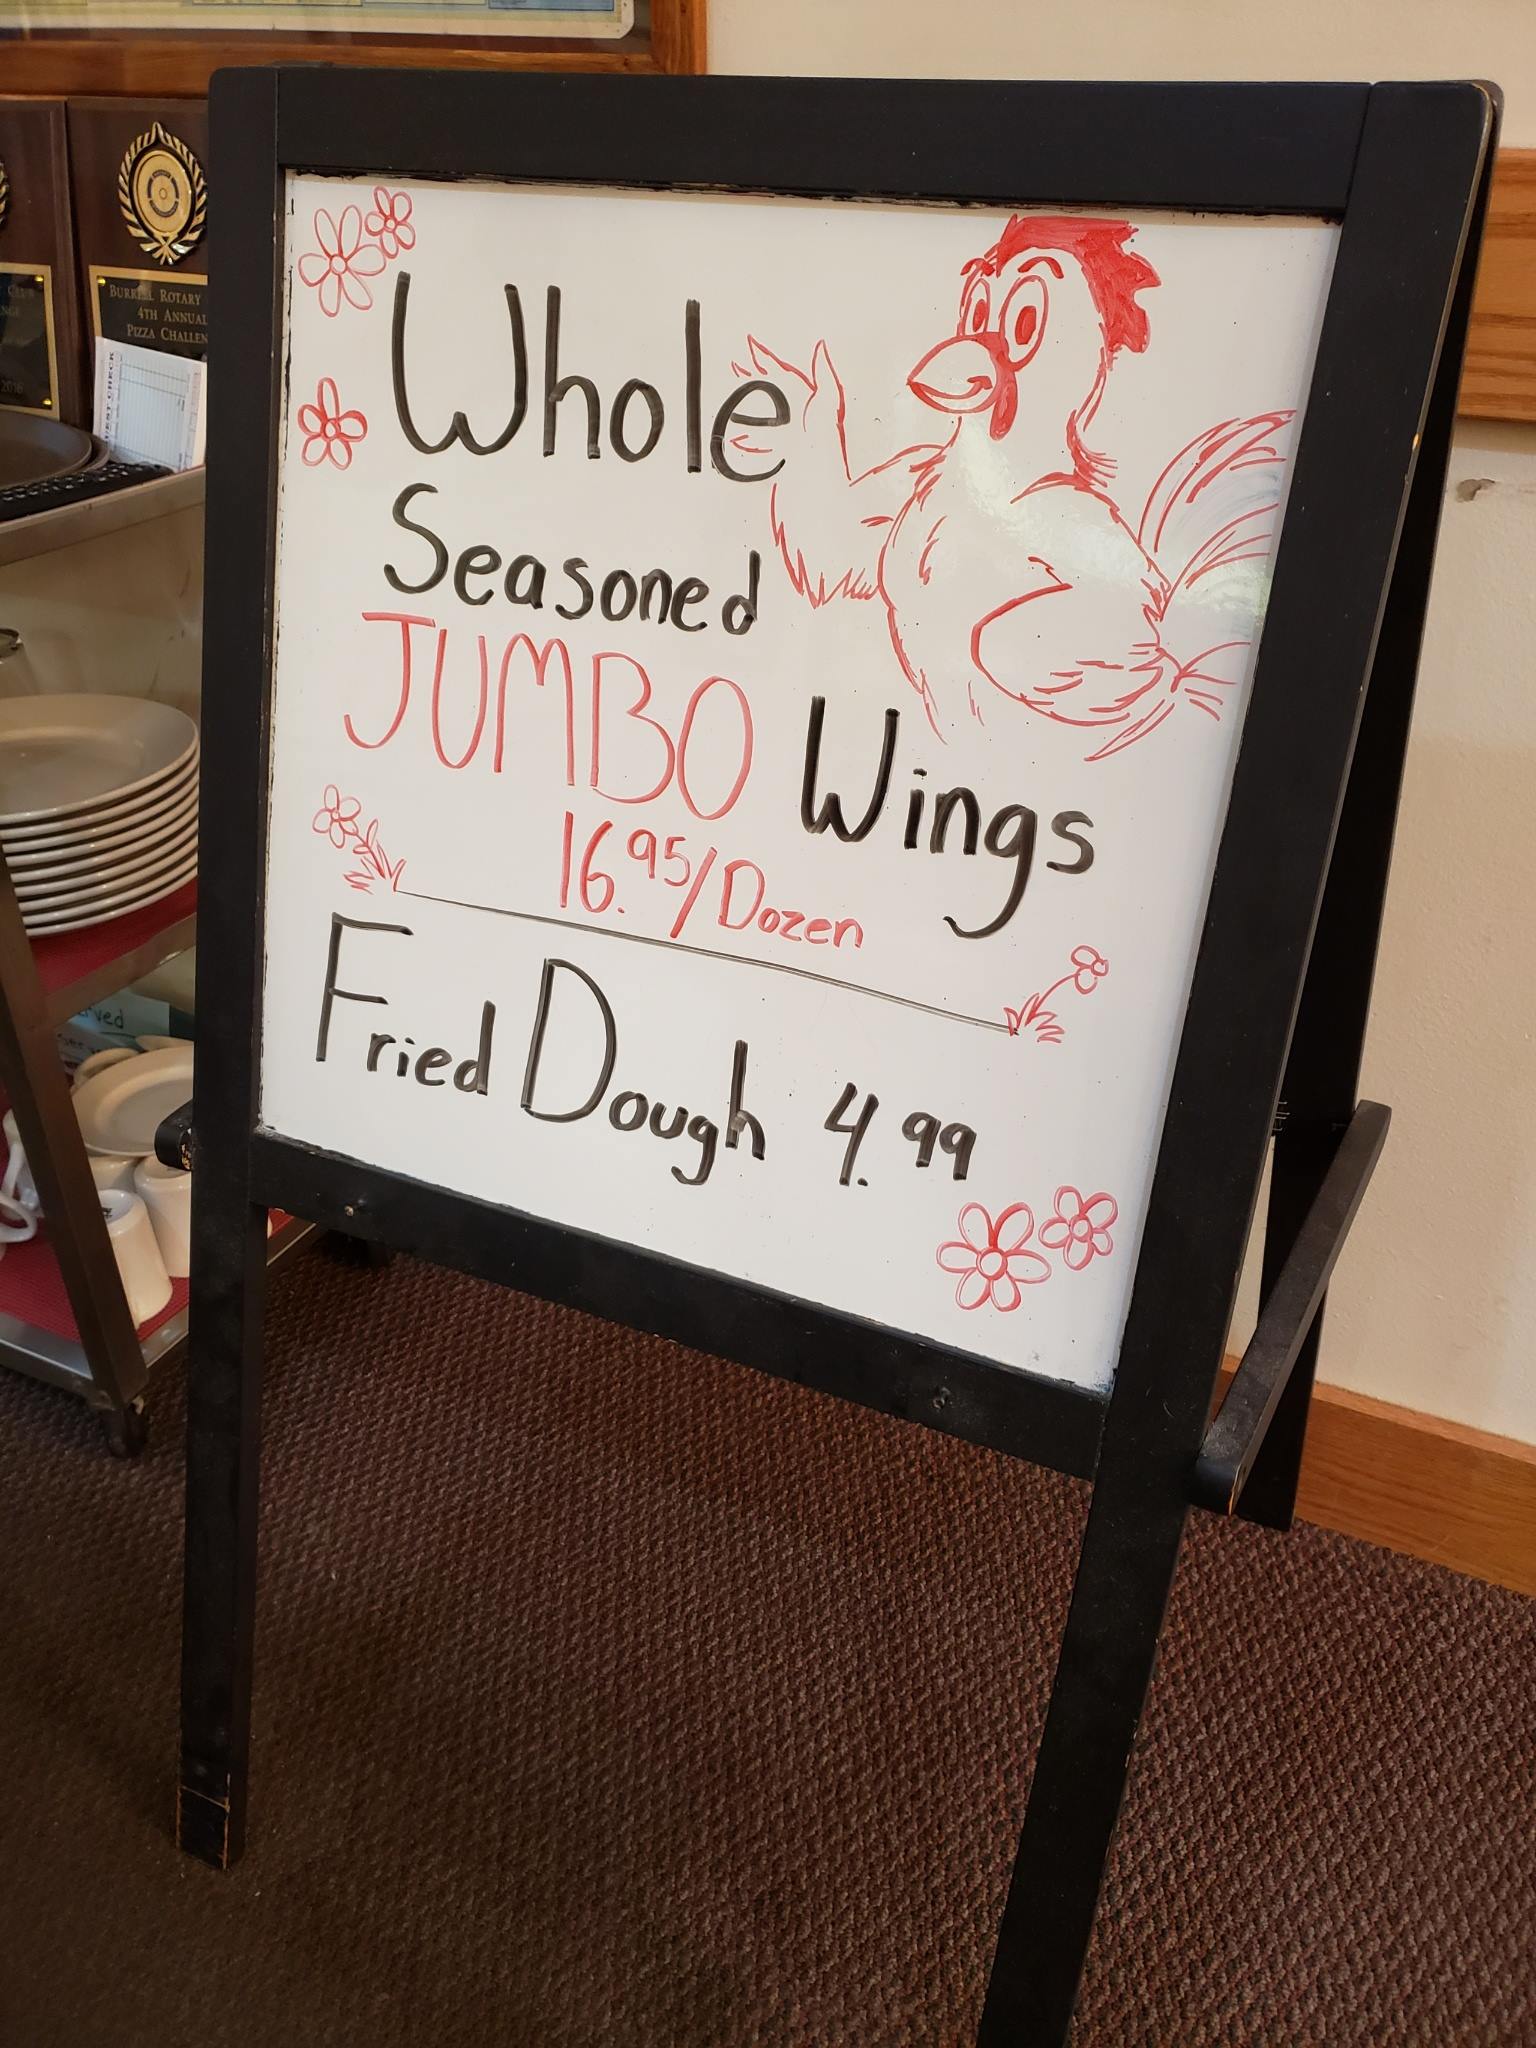 Whole
Seasoned
JUMBO Wings
16.95/Dozen
Fried Dough 4.99
BURRELL ROTARY
4TH ANNUAL
PIZZA
2016
GUEST CHECK